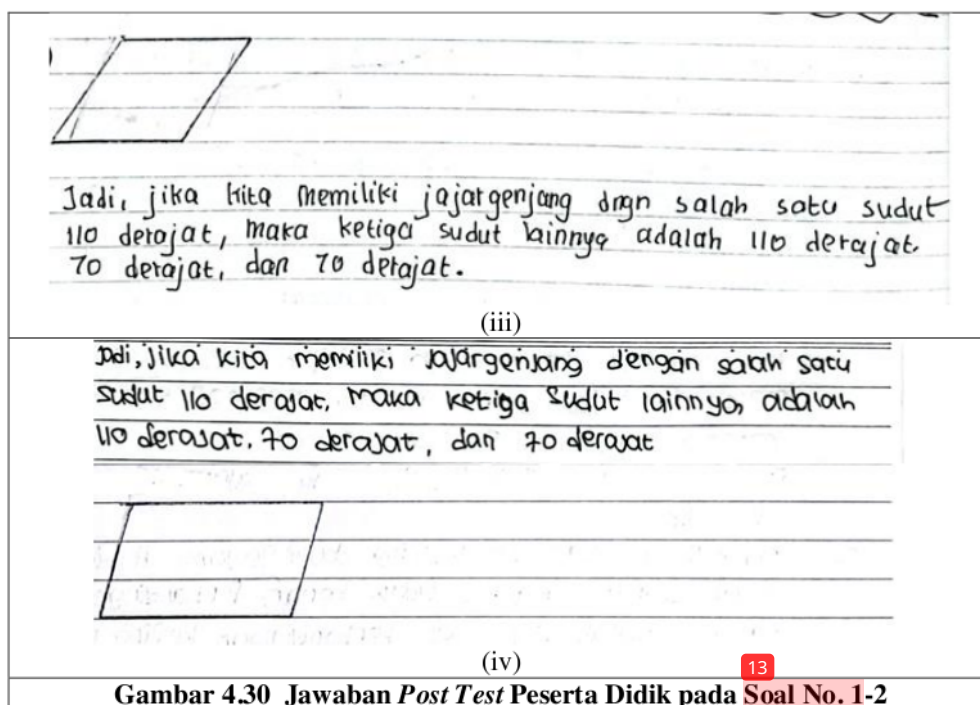 Jadi, jika kita memiliki jajargenjang dngn salah satu sudut
110 derajat, maka ketiga sudut lainnya adalah 110 derajat.
70 derajat, dan 70 derajat.
(iii)
Jadi, jika kita memiliki jajargenjang dengan salah satu
sudut 110 derajat, maka ketiga sudut lainnya, adalah
110 derajat. 70 derajat, dan 70 derajat
(iv)
13
Gambar 4.30 Jawaban Post Test Peserta Didik pada Soal No. 1-2